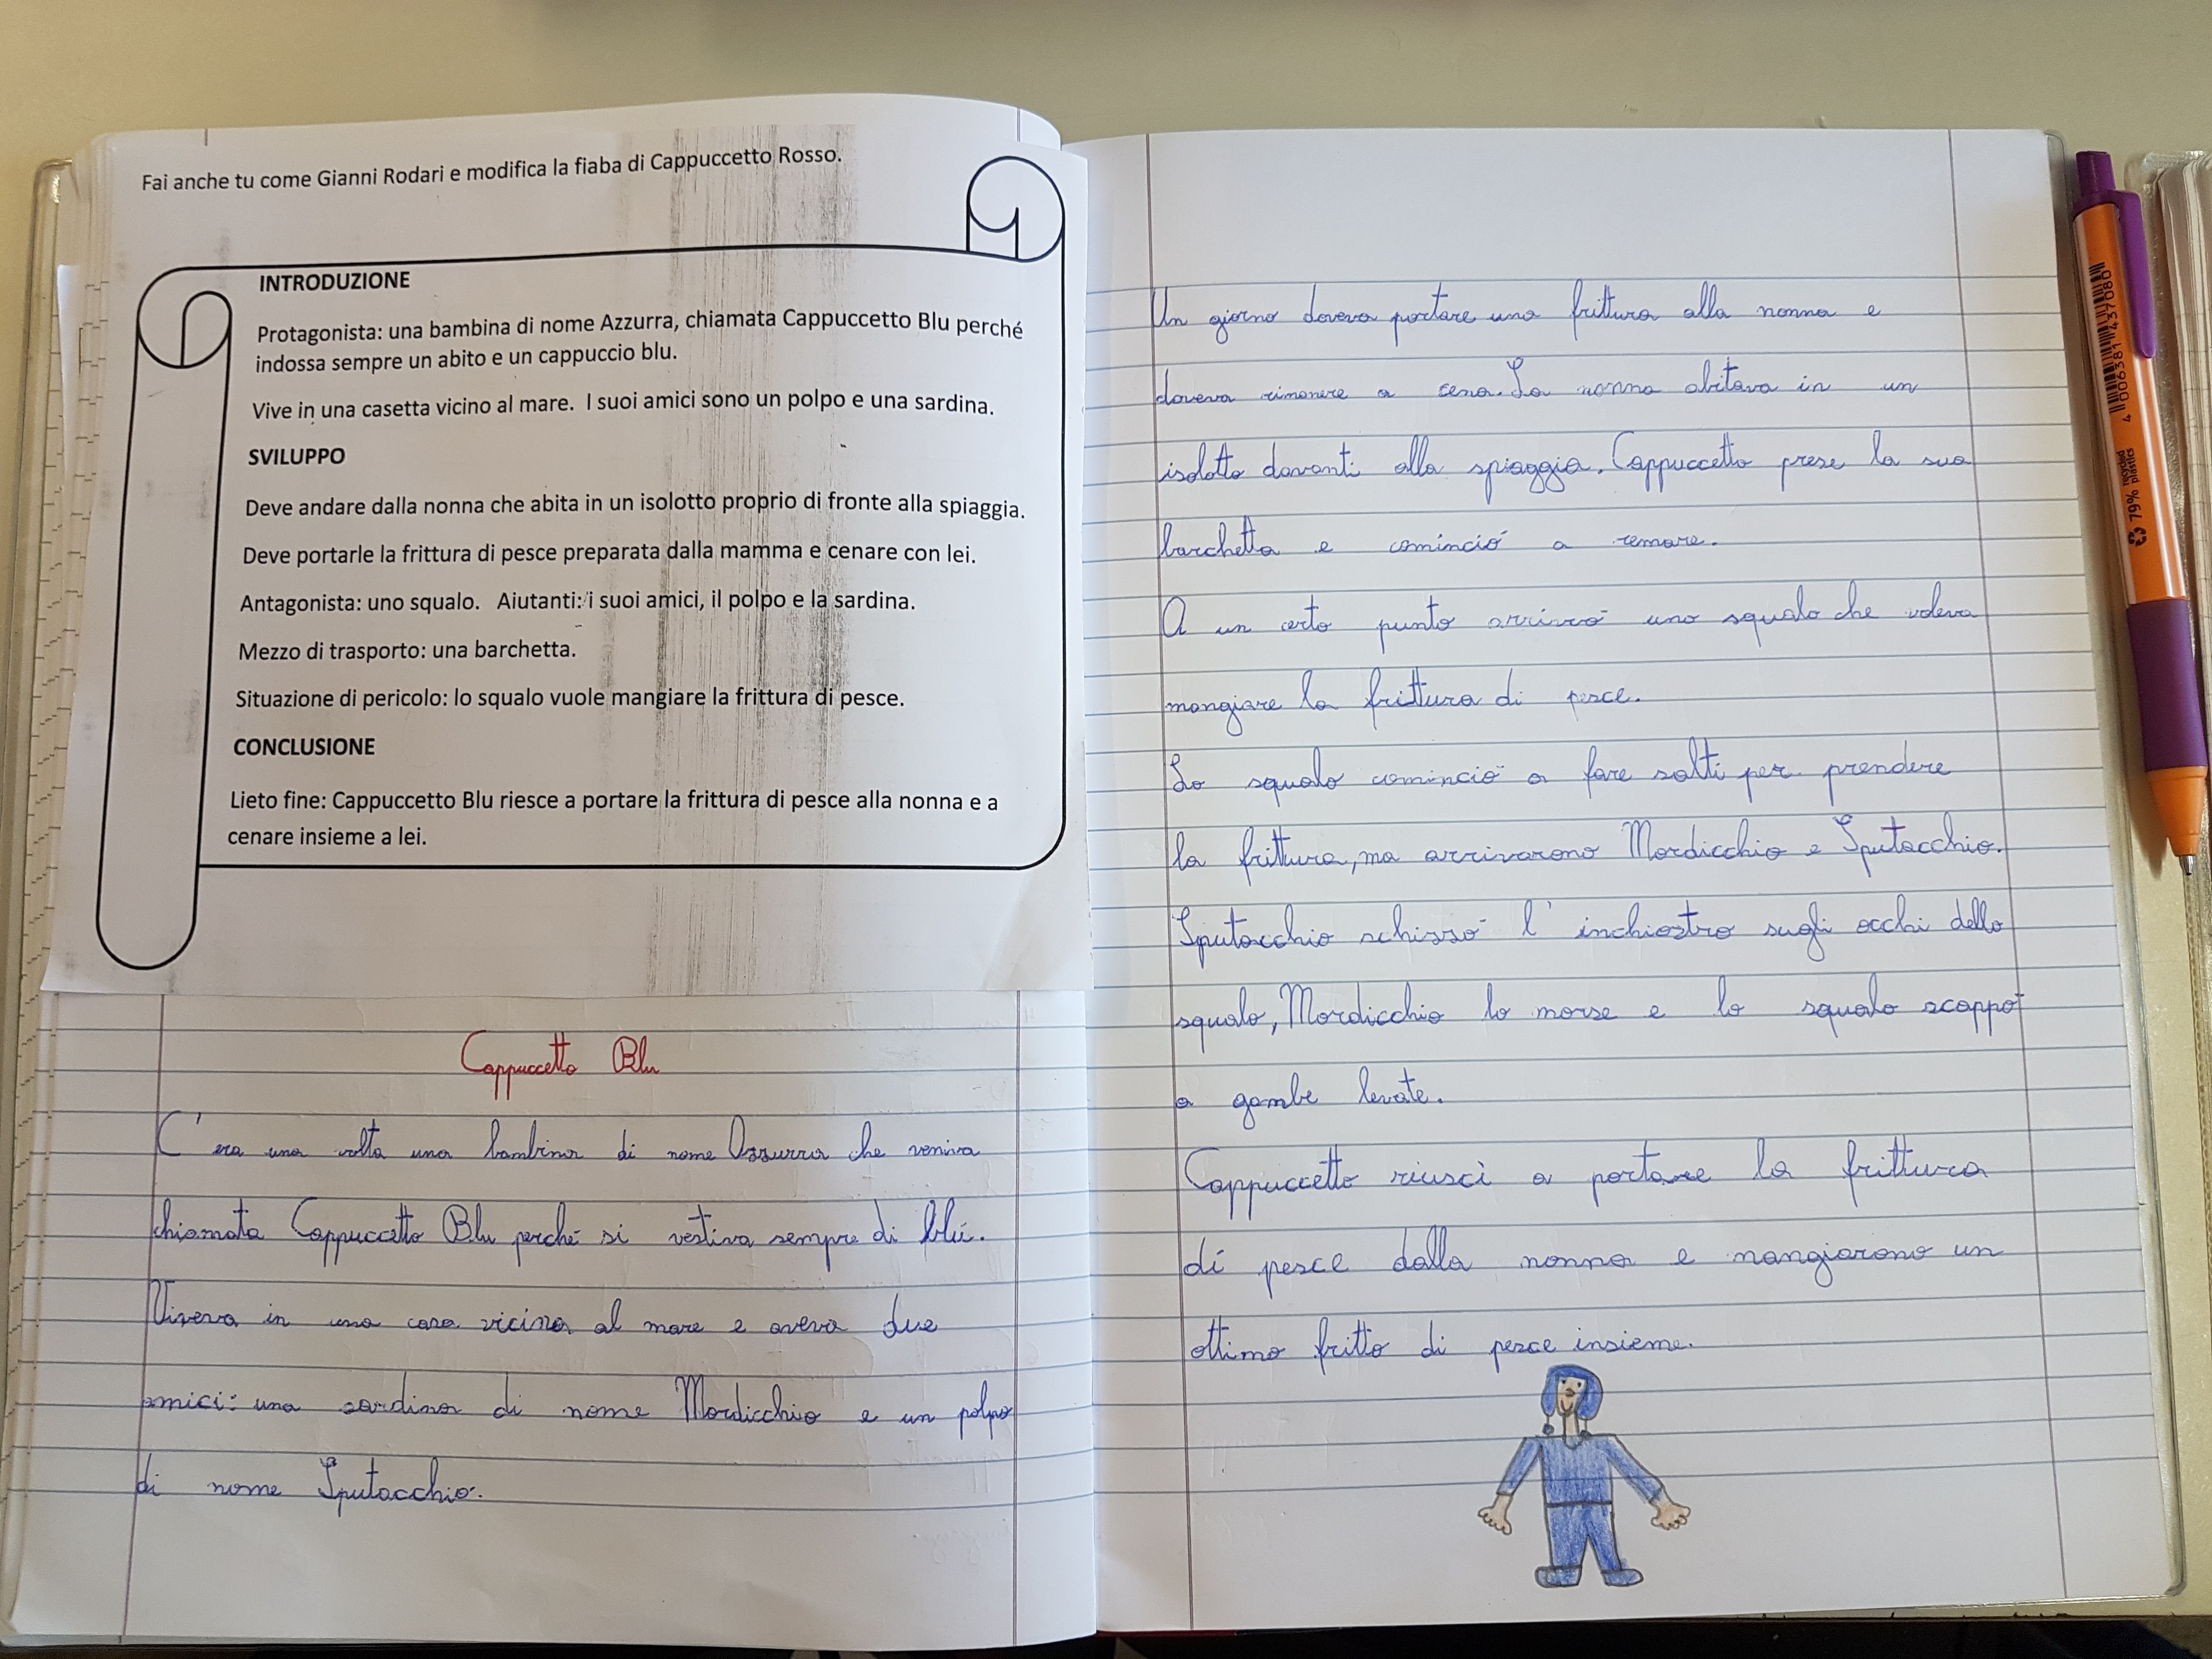 Fai anche tu come Gianni Rodari e modifica la fiaba di Cappuccetto Rosso.
INTRODUZIONE
Protagonista: una bambina di nome Azzurra, chiamata Cappuccetto Blu perché
indossa sempre un abito e un cappuccio blu.
Vive in una casetta vicino al mare. I suoi amici sono un polpo e una sardina.
SVILUPPO
Deve andare dalla nonna che abita in un isolotto proprio di fronte alla spiaggia.
Deve portarle la frittura di pesce preparata dalla mamma e cenare con lei.
Antagonista: uno squalo. Aiutanti: i suoi amici, il polpo e la sardina.
Mezzo di trasporto: una barchetta.
Situazione di pericolo: lo squalo vuole mangiare la frittura di pesce.
CONCLUSIONE
Lieto fine: Cappuccetto Blu riesce a portare la frittura di pesce alla nonna e a
cenare insieme a lei.
Cappuccetto Blu
C'era una volta una bambina di nome Azzurra che veniva
chiamata Cappuccetto Blu perché si vestiva sempre di blú.
Viveva in una casa vicina al mare e aveva due
amici: una sardina di nome Mordicchio e un polpo
di nome Sputacchio.
Un giorno doveva portare una frittura alla nonna e
doveva rimanere a cena. La nonna abitava in un
isolotto davanti alla spiaggia. Cappuccetto prese la sua
barchetta e cominció a remare.
A un certo punto arrivó uno squalo che voleva
mangiare la frittura di pesce.
Lo squalo cominció a fare salti per prendere
la frittura, ma arrivarono Mordicchio e Sputacchio.
Sputacchio schizzó l'inchiostro sugli occhi dello
squalo, Mordicchio lo morse e lo squalo scappó
a gambe levate.
Cappuccetto riuscì a portare la frittura
di pesce dalla nonna e mangiarono un
ottimo fritto di pesce insieme.
4 006381 437080
79% recycled plastics